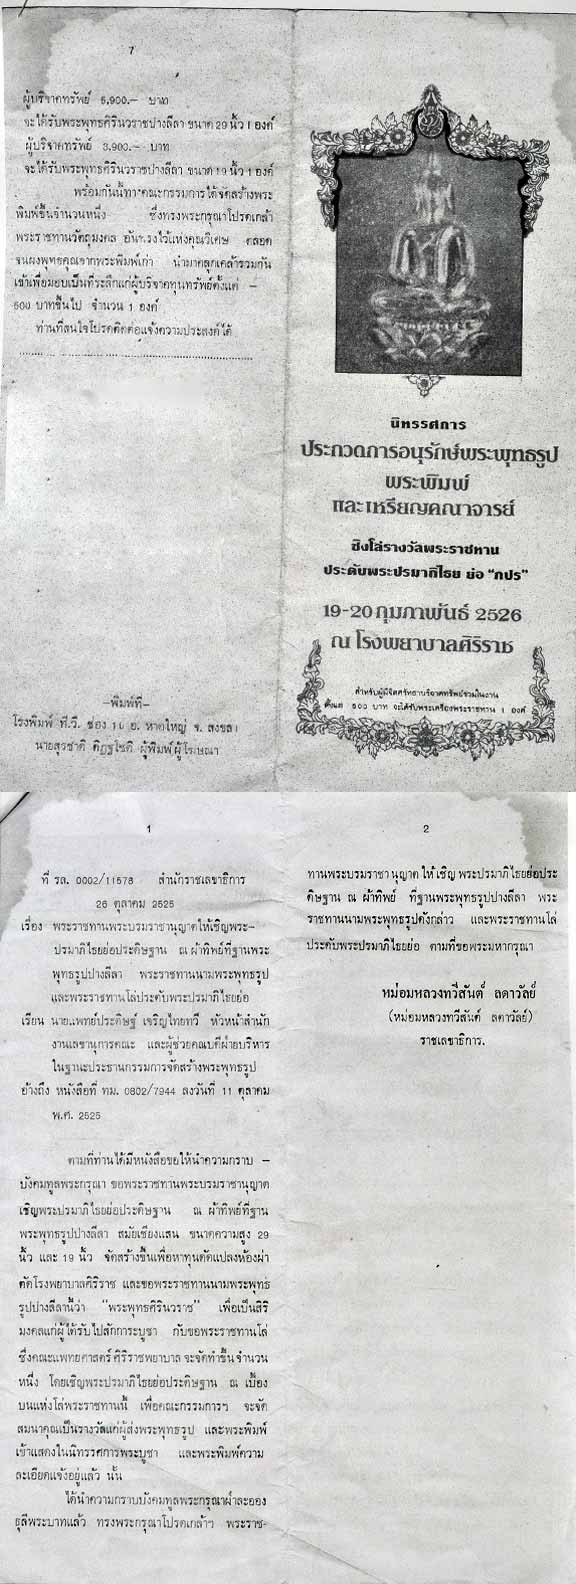 7
ผู้บริจาคทรัพย์ 5,900.— บาท
จะได้รับพระพุทธศิรินวราชปางลีลา ขนาด 29 นิ้ว 1 องค์
ผู้บริจาคทรัพย์ 3,900.— บาท
จะได้รับพระพุทธศิรินวราชปางลีลา ขนาด 19 นิ้ว 1 องค์
พร้อมกันนี้ทางคณะกรรมการได้จัดสร้างพระ
พิมพ์ขึ้นจำนวนหนึ่ง ซึ่งทรงพระกรุณาโปรดเกล้า
พระราชทานวัตถุมงคล อันทรงไว้แห่งคุณวิเศษ ตลอด
จนผงพุทธคุณจากพระพิมพ์เก่า นำมาคลุกเคล้ารวมกัน
เข้าเพื่อมอบเป็นที่ระลึกแก่ผู้บริจาคทุนทรัพย์ตั้งแต่ —
500 บาทขึ้นไป จำนวน 1 องค์
ท่านที่สนใจโปรดติดต่อแจ้งความประสงค์ได้
—พิมพ์ที่—
โรงพิมพ์ ที.วี. ช่อง 10 อ. หาดใหญ่ จ. สงขลา
นายสุรชาติ ผู้พิมพ์ผู้โฆษณา
นิทรรศการ
ประกวดการอนุรักษ์พระพุทธรูป
พระพิมพ์
และเหรียญคณาจารย์
ชิงโล่รางวัลพระราชทาน
ประดับพระปรมาภิไธย ย่อ “ภปร”
19-20 กุมภาพันธ์ 2526
ณ โรงพยาบาลศิริราช
สำหรับผู้มีจิตศรัทธาบริจาคทรัพย์ร่วมในงาน
ตั้งแต่ 500 บาท จะได้รับพระเครื่องพระราชทาน 1 องค์
1
ที่ รล. 0002/11578 สำนักราชเลขาธิการ
26 ตุลาคม 2525
เรื่อง พระราชทานพระบรมราชานุญาตให้เชิญพระ—
ปรมาภิไธยย่อประดิษฐาน ณ ผ้าทิพย์ที่ฐานพระ
พุทธรูปปางลีลา พระราชทานนามพระพุทธรูป
และพระราชทานโล่ประดับพระปรมาภิไธยย่อ
เรียน นายแพทย์ประดิษฐ์ เจริญไทยทวี หัวหน้าสำนัก
งานเลขานุการคณะ และผู้ช่วยคณบดีฝ่ายบริหาร
ในฐานะประธานกรรมการจัดสร้างพระพุทธรูป
อ้างถึง หนังสือที่ ทม. 0802/7944 ลงวันที่ 11 ตุลาคม
พ.ศ. 2525
ตามที่ท่านได้มีหนังสือขอให้นำความกราบ —
บังคมทูลพระกรุณา ขอพระราชทานพระบรมราชานุญาต
เชิญพระปรมาภิไธยย่อประดิษฐาน ณ ผ้าทิพย์ที่ฐาน
พระพุทธรูปปางลีลา สมัยเชียงแสน ขนาดความสูง 29
นิ้ว และ 19 นิ้ว จัดสร้างขึ้นเพื่อหาทุนดัดแปลงห้องผ่า
ตัดโรงพยาบาลศิริราช และขอพระราชทานนามพระพุทธ
รูปปางลีลานี้ว่า “พระพุทธศิรินวราช” เพื่อเป็นสิริ
มงคลแก่ผู้ได้รับไปสักการะบูชา กับขอพระราชทานโล่
ซึ่งคณะแพทยศาสตร์ศิริราชพยาบาล จะจัดทำขึ้นจำนวน
หนึ่ง โดยเชิญพระปรมาภิไธยย่อประดิษฐาน ณ เบื้อง
บนแห่งโล่พระราชทานนี้ เพื่อคณะกรรมการฯ จะจัด
สมนาคุณเป็นรางวัลแก่ผู้ส่งพระพุทธรูป และพระพิมพ์
เข้าแสดงในนิทรรศการพระบูชา และพระพิมพ์ความ
ละเอียดแจ้งอยู่แล้ว นั้น
ได้นำความกราบบังคมทูลพระกรุณาฝ่าละออง
ธุลีพระบาทแล้ว ทรงพระกรุณาโปรดเกล้าฯ พระราช-
2
ทานพระบรมราชานุญาตให้เชิญ พระปรมาภิไธยย่อประ
ดิษฐาน ณ ผ้าทิพย์ ที่ฐานพระพุทธรูปปางลีลา พระ
ราชทานนามพระพุทธรูปดังกล่าว และพระราชทานโล่
ประดับพระปรมาภิไธยย่อ ตามที่ขอพระมหากรุณา
หม่อมหลวงทวีสันต์ ลดาวัลย์
(หม่อมหลวงทวีสันต์ ลดาวัลย์)
ราชเลขาธิการ.